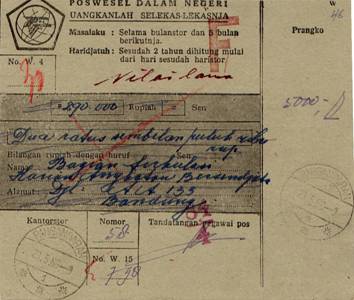 POSWESEL DALAM NEGERI
UANGKANLAH SELEKAS-LEKASNJA
W
46
Masalaku : Selama bulanstor dan 5 bulan
berikutnja.
Prangko
Haridjatuh : Sesudah 2 tahun dihitung mulai
dari hari sesudah haristor
F
No. W. 4
Nilai lama
5000.-
290.000 Rupiah = Sen
Dua ratus sembilan puluh ribu
rup
Bilangan rupiah dengan huruf Sen
Nama Bagian
Harian Angkatan Bersendjata
Alamat : Djl. 133
Bandung
Kantorstor Nomor Tandatangan pegawai pos
58
No. W 15